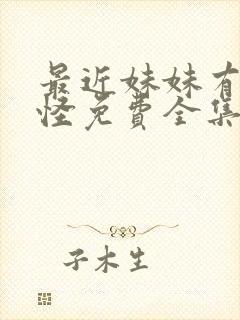 最近妹妹有
怪免费全集
子木生